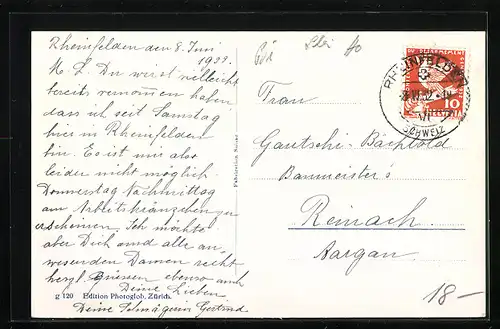 Rheinfelden den 8. Juni
1932.
M. L. Du wirst vielleicht
bereits vernommen haben
dass ich seit Samstag
hier in Rheinfelden
bin. Es ist mir aber
leider nicht möglich
Donnerstag Nachmittag
am Arbeitskränzchen zu
erscheinen. Ich möchte
aber Dich und alle an-
wesenden Damen recht
herzl. grüssen ebenso auch
Deine Lieben
Deine Schwägerin Gertrud
g 120 Edition Photoglob, Zürich.
Fabrication Suisse
RHEINFELDEN
SCHWEIZ
10
HELVETIA
Frau
Gautschi-Bächtold
Baumeister's
Reinach
Aargau
18-